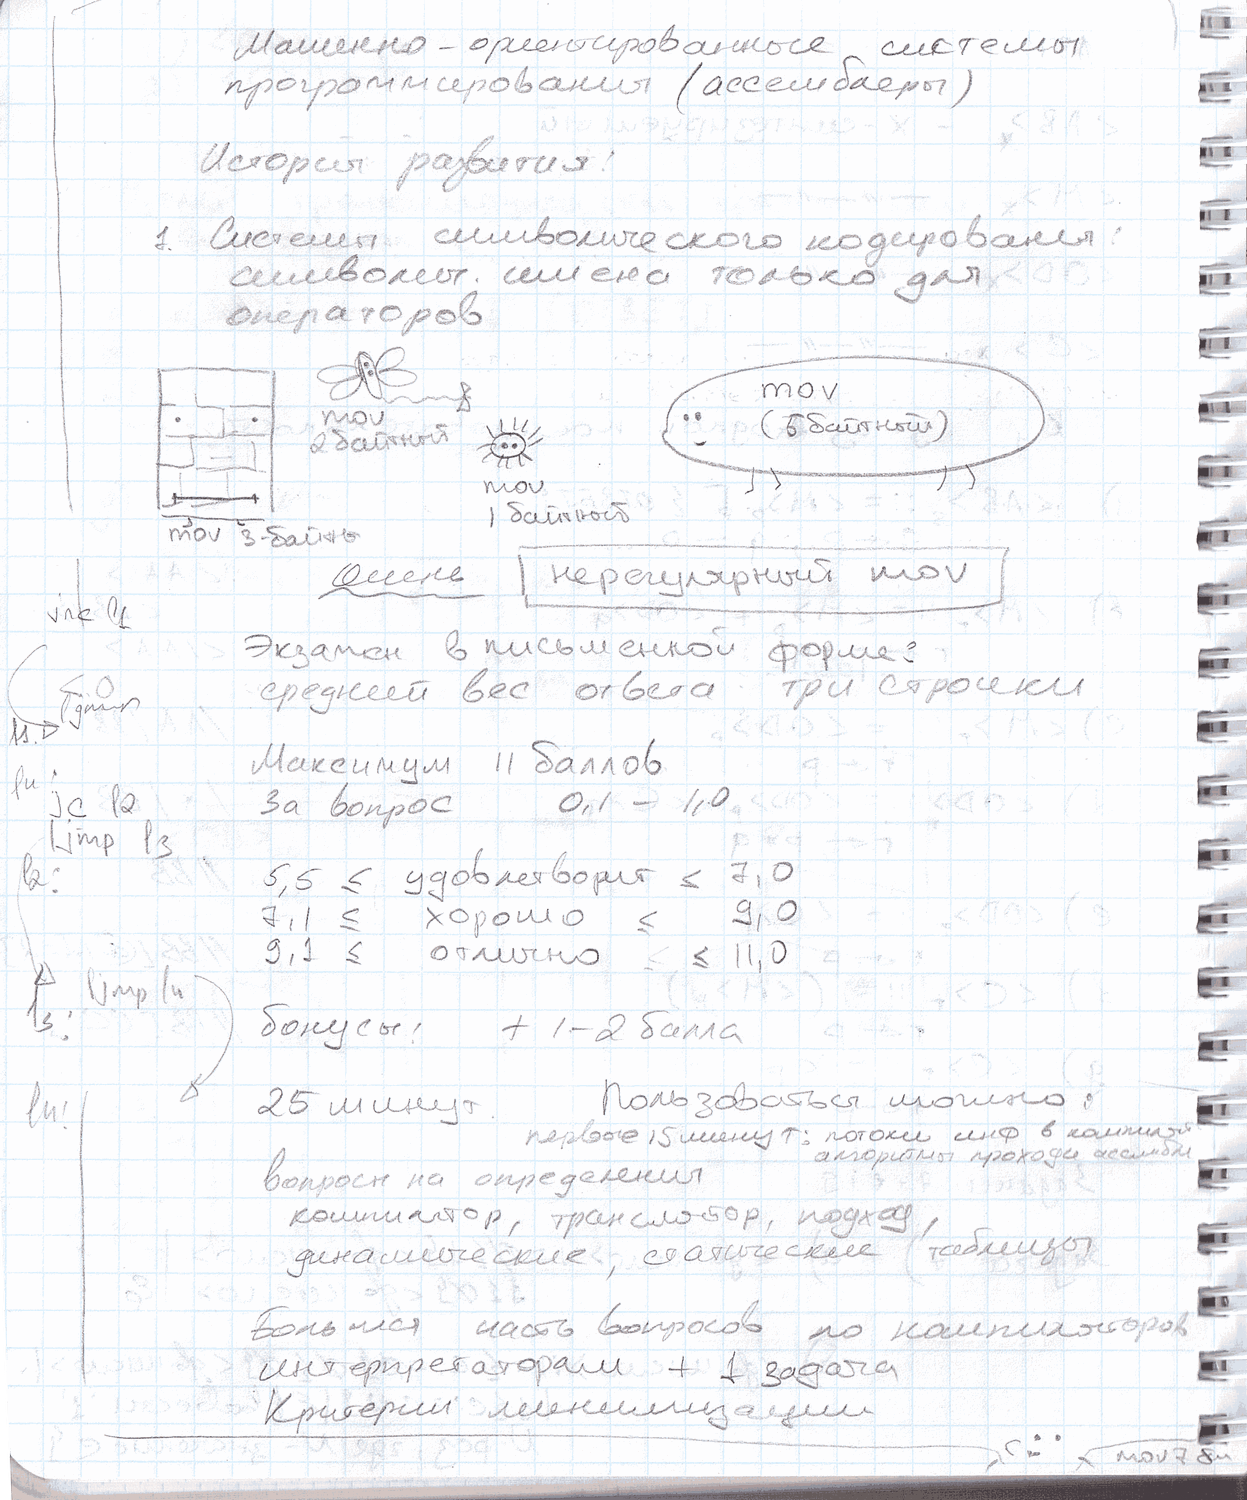 Машенно-ориентированные системы
программирования (ассемблеры)
История развития:
1. Системы символического кодирования:
символич. имена только для
операторов
mov
2 байтный
mov
1 байтный
mov
(5 байтный)
mov 3-байтн
очень нерегулярный mov
jnc l1
Экзамен в письменной форме:
средний вес ответа три строчки
Максимум 11 баллов
За вопрос 0,1 – 1,0
jc l2
jmp l3
l2:
5,5 ≤ удовлетворит ≤ 7,0
7,1 ≤ хорошо ≤ 9,0
9,1 ≤ отлично ≤ 11,0
jmp ln
l3:
бонусы: + 1-2 балла
ln:
25 минут. Пользоваться можно:
первые 15 минут: потоки инф в компилят
алгоритмы проходи ассембле
вопросы на определения
компилятор, транслятор, подход,
динамические, статические (таблицы
Большая часть вопросов по компиляторов
интерпретаторам + 1 задача
Критерии минимизации
mov 7 би